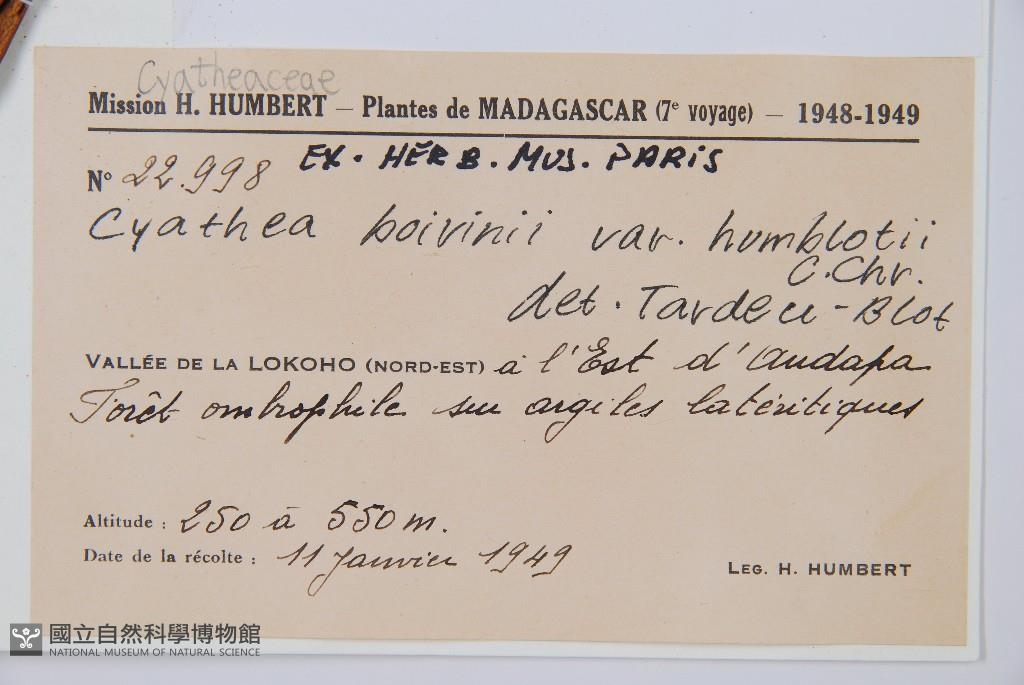 Cyatheaceae
Mission H. HUMBERT — Plantes de MADAGASCAR (7e voyage) — 1948-1949
EX. HERB. MUS. PARIS
No 22.998
Cyathea boivinii var. humblotii
C.Chr.
det. Tardieu-Blot
VALLÉE DE LA LOKOHO (NORD-EST) à l'Est d'Andapa
Forêt ombrophile sur argiles latéritiques
Altitude : 250 à 550 m.
Date de la récolte : 11 Janvier 1949
LEG. H. HUMBERT
國立自然科學博物館
NATIONAL MUSEUM OF NATURAL SCIENCE